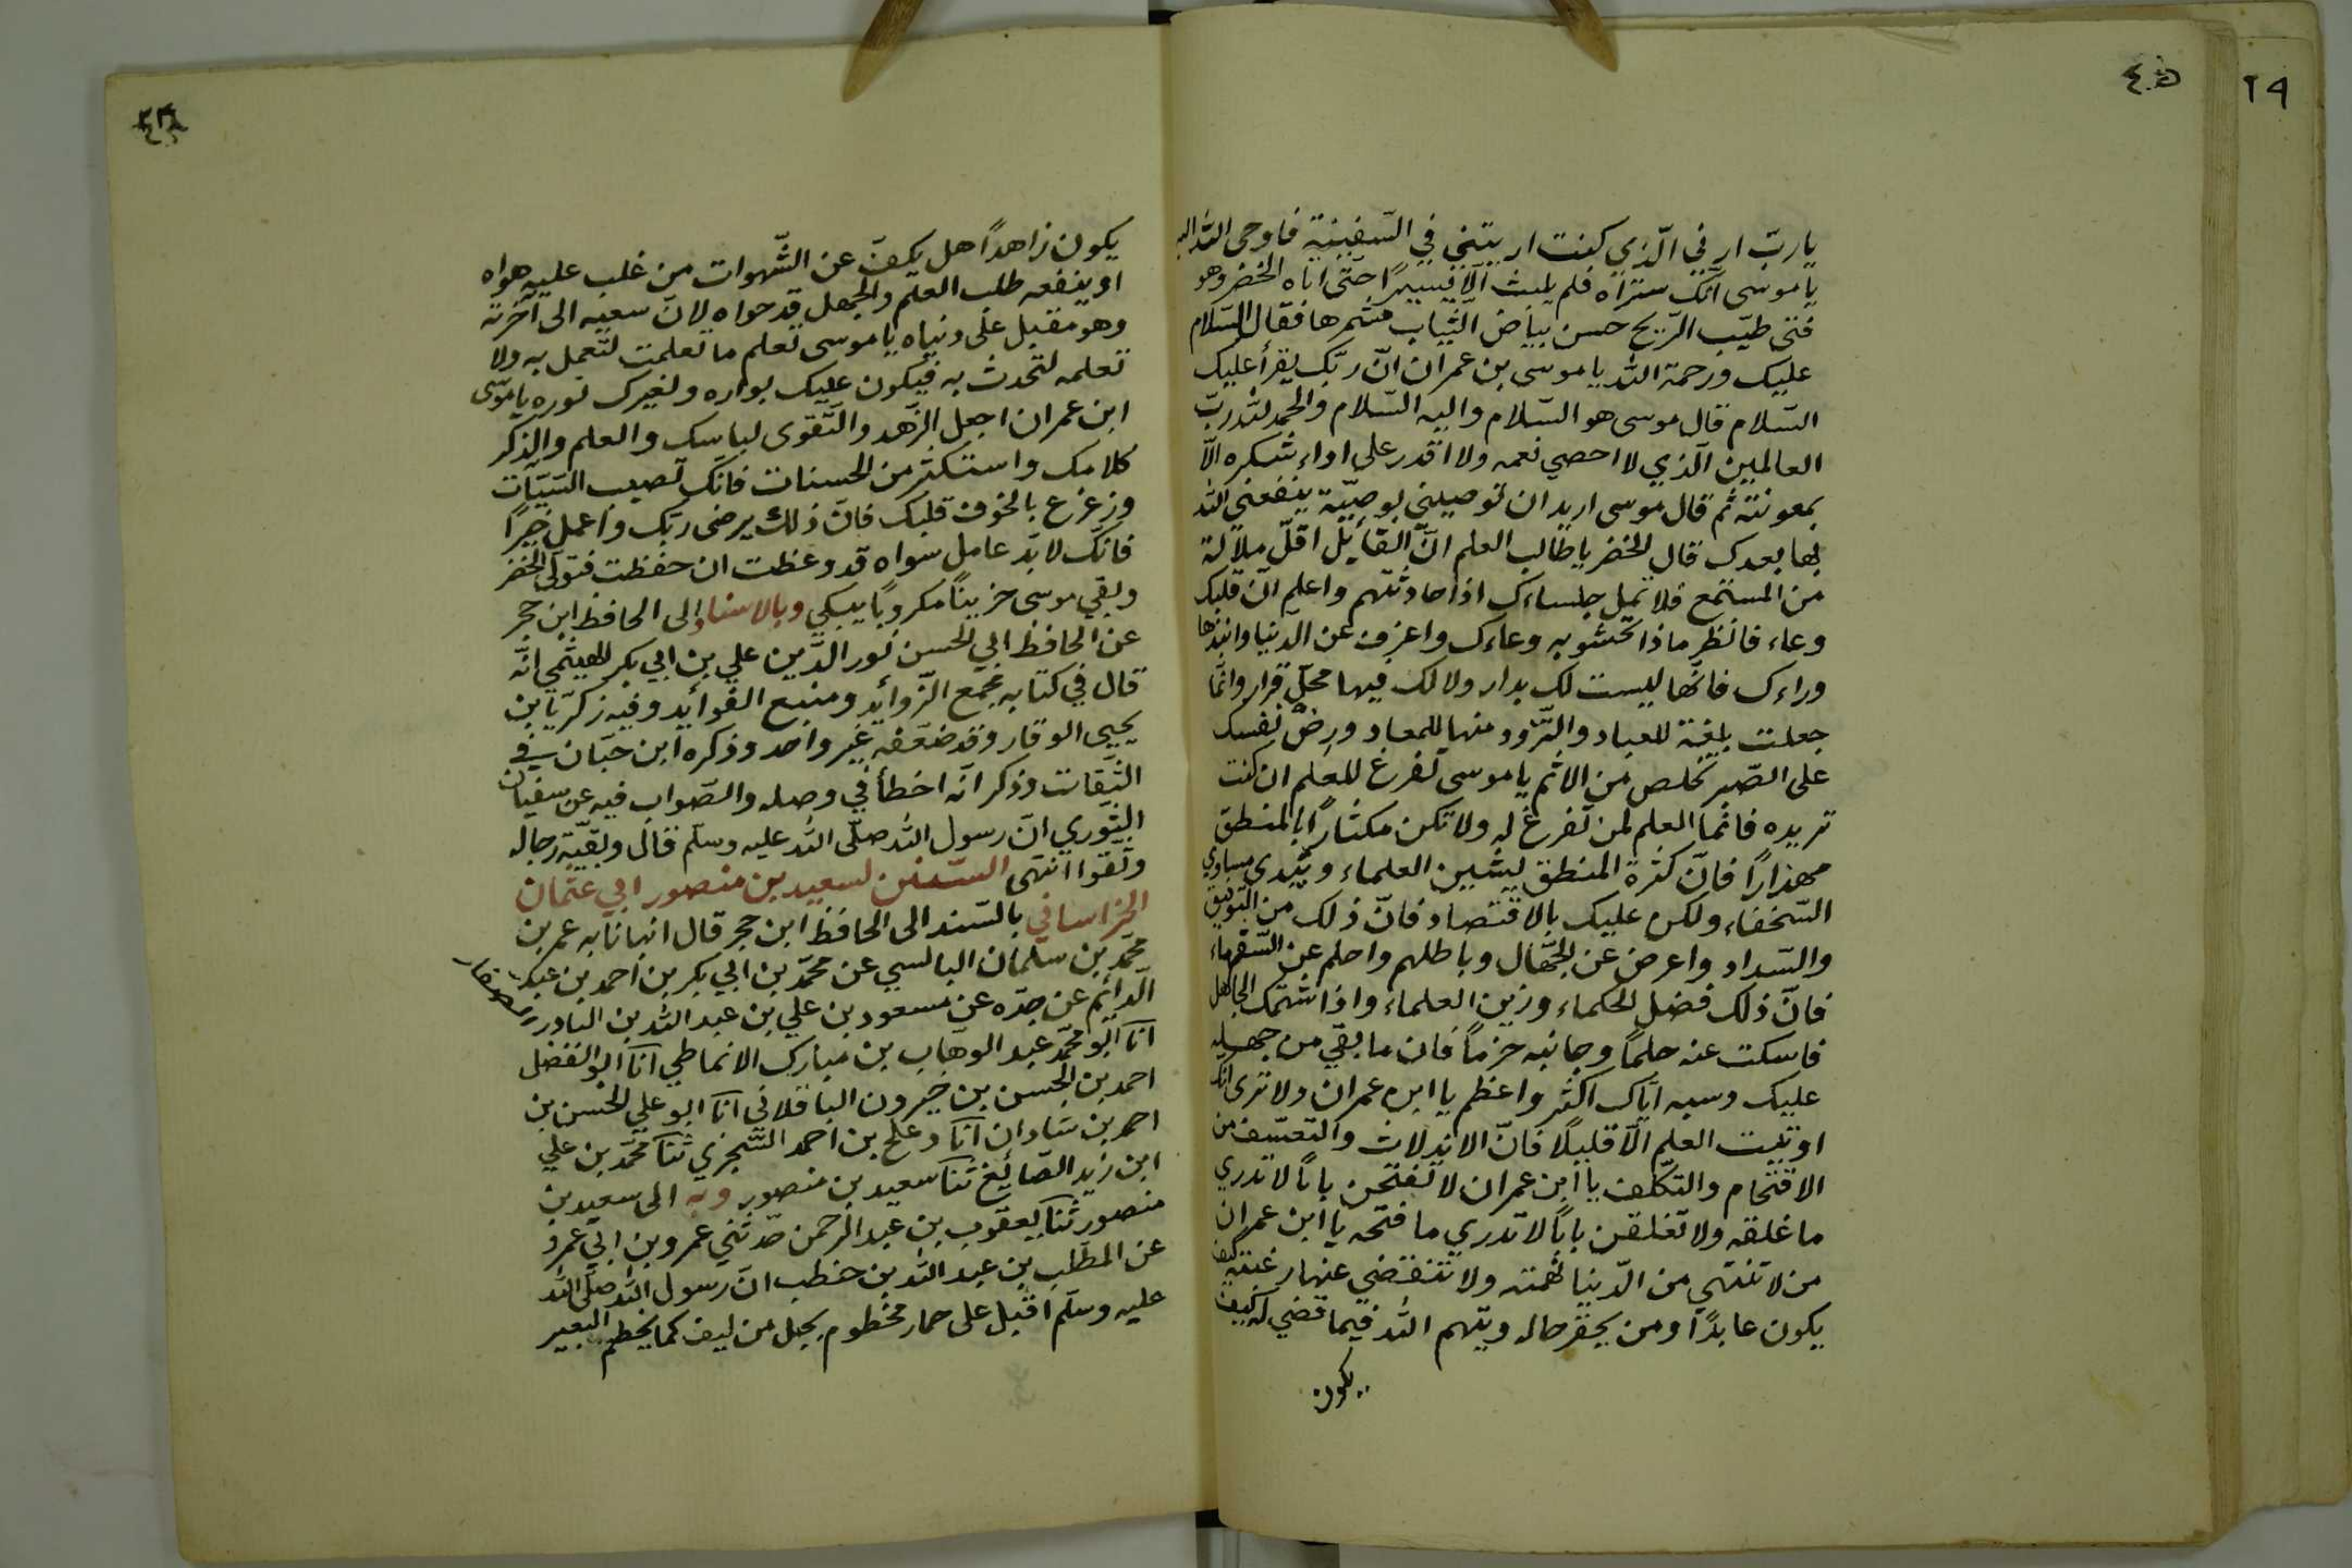 يا ربّ ارني الّذي كنت اريتني في السّفينة فاوحى الله اليه
يا موسى انّك ستراه فلم يلبث الّا يسيرًا حتّى اتاه الخضر وهو
فتى طيّب الرّيح حسن بياض الثّياب مشمرها فقال السّلام
عليك ورحمة الله يا موسى بن عمران انّ ربّك يقرأ عليك
السّلام قال موسى هو السّلام واليه السّلام والحمد لله ربّ
العالمين الّذي لا احصي نعمه ولا اقدر على اداء شكره الّا
بمعونته ثم قال موسى اريد ان توصيني بوصيّة ينفعني الله
بها بعدك قال الخضر يا طالب العلم انّ القائل اقلّ ملالة
من المستمع فلا تمل جلساءك اذا حادثتهم واعلم انّ قلبك
وعاء فانظر ماذا تحشو به وعاءك واعزف عن الدنيا وانبذها
وراءك فانّها ليست لك بدار ولا لك فيها محلّ قرار وانّما
جعلت بلغة للعباد والتّزود منها للمعاد ورضّ نفسك
على الصّبر تخلص من الاثم يا موسى تفرغ للعلم ان كنت
تريده فانّما العلم لمن تفرغ له ولا تكن مكثارًا بالمنطق
مهذارًا فانّ كثرة المنطق يشين العلماء ويبدى مساوي
السّخفاء ولكن عليك بالاقتصاد فانّ ذلك من التّوفيق
والسّداد واعرض عن الجهّال وباطلهم واحلم عن السّفهاء
فانّ ذلك فضل الحكماء وزين العلماء واذا شتمك الجاهل
فاسكت عنه حلمًا وجانبه حزمًا فان ما بقي من جهله
عليك وسبه ايّاك اكثر واعظم يا ابن عمران ولا ترى انّك
اوتيت العلم الّا قليلًا فانّ الاندلاث والتعسّف من
الاقتحام والتكلّف يا ابن عمران لا تفتحن بابًا لا تدري
ما غلقه ولا تغلقن بابًا لا تدري ما فتحه يا ابن عمران
من لا تنتهي من الدّنيا نهمته ولا تنقضي عنها رغبته كيف
يكون عابدًا ومن يحقر حاله ويتهم الله فيما قضى له كيف
يكون
يكون زاهدًا هل يكفّ عن الشّهوات من غلب عليه هواه
او ينفعه طلب العلم والجهل قد حواه لانّ سعيه الى آخرته
وهو مقبل على دنياه يا موسى تعلم ما تعلمت لتعمل به ولا
تعلمه لتحدث به فيكون عليك بواره ولغيرك نوره يا موسى
ابن عمران اجعل الزّهد والتّقوى لباسك والعلم والذكر
كلامك واستكثر من الحسنات فانّك تصيب السّيّآت
وزعزع بالخوف قلبك فانّ ذلك يرضي ربّك واعمل خيرًا
فانّك لا بدّ عامل سواه قد وعظت ان حفظت فتولّى الخضر
وبقي موسى حزينًا مكروبًا يبكي وبالاسناد الى الحافظ ابن حجر
عن الحافظ ابي الحسن نور الدّين علي بن ابي بكر الهيثمي انّه
قال في كتابه مجمع الزّوائد ومنبع الفوائد وفيه زكريّا بن
يحيى الوقار وقد ضعّفه غير واحد وذكره ابن حبّان في
الثّقات وذكر انّه اخطأ في وصله والصّواب فيه عن سفيان
الثّوري انّ رسول الله صلّى الله عليه وسلّم قال وبقيّة رجاله
وثقوا انتهى السّنن لسعيد بن منصور ابي عثمان
الخراساني بالسّند الى الحافظ ابن حجر قال انبانا به عمر بن
محمّد بن سلمان البالسي عن محمّد بن ابي بكر بن احمد بن عبد
الدّائم عن جدّه عن مسعود بن علي بن عبد الله بن النادر
انا ابو محمّد عبد الوهّاب بن مبارك الانماطي انا ابو الفضل
احمد بن الحسن بن خيرون الباقلاني انا ابو علي الحسن بن
احمد بن شادان انا دعلج بن احمد السّجزي ثنا محمّد بن علي
ابن زيد الصّائغ ثنا سعيد بن منصور وبه الى سعيد بن
منصور ثنا يعقوب بن عبد الرّحمن حدّثني عمرو بن ابي عمرو
عن المطّلب بن عبد الله بن حنطب انّ رسول الله صلّى الله
عليه وسلّم اقبل على حمار مخطوم بحبل من ليف كما يخطم البعير